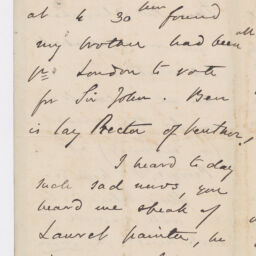 at 4 30 found
my brother had been
London to vote
for Sir John. Ben
is lay Rector of Ventnor,
I heard to day
such sad news, you
heard me speak of
Laurel painter, he